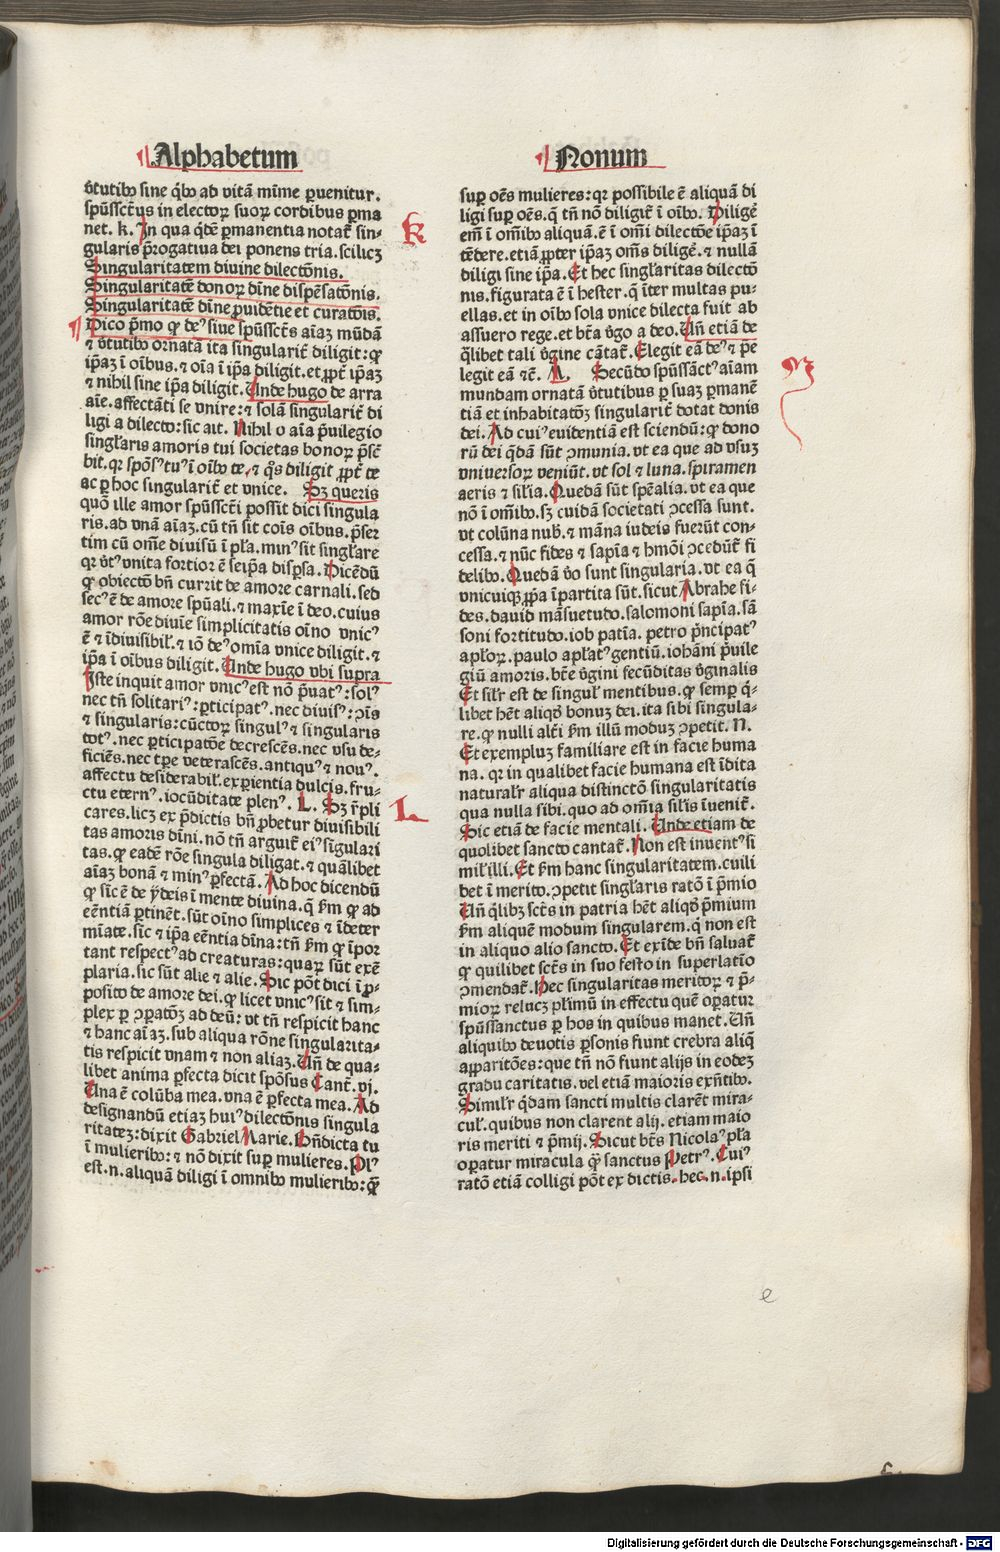 Alphabetum
v̄tutibꝰ sine q̇bꝰ ad vitā mīme ꝑuenitur.
spūssctꝰus in electoꝝ suoꝝ cordibus ꝑma
net. k. In qua q̇dē ꝑmanentia notat᷑ sin⸗
gularis p̄rogatiua dei ponens tria. scilicꝫ
Singularitatem diuine dilectōnis.
Singularitatē donoꝝ dīne dispēsatōnis.
Singularitatē dīne ꝓuidētie et curatōis.
Dico p̄mo ꝙ deꝰ siue spūssctꝰs aīaꝫ mūdā
⁊ v̄tutibꝰ ornatā ita singularit᷑ diligit: ꝙ
ip̄aꝫ ī oībus. ⁊ oīa ī ip̄a diligit. et ꝓpt᷑ ip̄aꝫ
⁊ nihil sine ip̄a diligit. Unde hugo de arra
aīe. affectāti se vnire: ⁊ solā singularit᷑ di
ligi a dilecto: sic ait. Nihil o aīa p̄uilegio
singl̄aris amoris tui societas bonoꝝ p̄sc̄
bit. qꝛ spōsꝰ tuꝰ ī oībꝰ te. ⁊ q̄s diligit ꝓpt᷑ te
ac ꝑ hoc singularit᷑ et vnice. Sꝫ queris
quō ille amor spūssctī possit dici singula
ris. ad vnā aīaꝫ. cū tn̄ sit coīs oībus. p̄ser
tim cū omē diuisū ī pl̄a. minꝰ sit singl̄are
qꝛ v̄tꝰ vnita fortior ē seip̄a disp̄sa. Dicēdū
ꝙ obiectō bn̄ currit de amore carnali. sed
secꝰ ē de amore spūali. ⁊ maxīe ī deo. cuius
amor rōe diuīe simplicitatis oīno vnicꝰ
ē ⁊ īdiuisibil̄. ⁊ iō deꝰ omīa vnice diligit. ⁊
ip̄a ī oībus diligit. Unde hugo vbi supra
Iste inquit amor vnicꝰ est nō p̄uatꝰ: solꝰ
nec tn̄ solitariꝰ: ꝑticipatꝰ. nec diuisꝰ: ꝯīs
⁊ singularis: cūctoꝝ singulꝰ ⁊ singularis
totꝰ. nec ꝑticipatōe decrescēs. nec vsu de⸗
ficiēs. nec tꝑe veterascēs. antiquꝰ ⁊ nouꝰ.
affectu desiderabil̄. exꝑientia dulcis. fru⸗
ctu eternꝰ. iocūditate plenꝰ. L. Sꝫ r̄pli
cares. licꝫ ex p̄dictis bn̄ ꝓbetur diuisibili
tas amoris dīni. nō tn̄ arguit᷑ eiꝰ sīgulari
tas. ꝙ eadē rōe singula diligat. ⁊ quālibet
aīaꝫ bonā ⁊ minꝰ ꝑfectā. Ad hoc dicendū
ꝙ sic ē de ẏdeis ī mente diuina. q̄ ẜm ꝙ ad
eēntiā ꝑtinēt. sūt oīno simplices ⁊ īdeter
mīate. sic ⁊ ip̄a eēntia dīna: tn̄ ẜm ꝙ īpor
tant respectꝰ ad creaturas: quaꝝ sūt exē
plaria. sic sūt alie ⁊ alie. Sic pōt dici ī ꝓ⸗
posito de amore dei. ꝙ licet vnicꝰ sit ⁊ sim⸗
plex ꝑ ꝯꝑatōꝫ ad deū: vt tn̄ respicit hanc
⁊ hanc aīaꝫ. sub aliqua rōne singularita⸗
tis respicit vnam ⁊ non aliaꝫ. Un̄ de qua⸗
libet anima ꝑfecta dicit spōsus Cant̄. vj.
Una ē colūba mea. vna ē ꝑfecta mea. Ad
designandū etiaꝫ huiꝰ dilectōnis singula
ritateꝫ: dixit Gabriel Marie. Bn̄dicta tu
ī mulieribꝰ: ⁊ nō dixit suꝑ mulieres. Plꝰ
est. n. aliquā diligi ī omnibꝰ mulieribꝰ: qꝫ
k
L
Nonum
suꝑ oēs mulieres: qꝛ possibile ē aliquā di
ligi suꝑ oēs. q̄ tn̄ nō diligit᷑ ī oībꝰ. Diligē
em̄ ī om̄ibꝰ aliquā. ē ī om̄i dilectōe ip̄aꝫ ī
tēdere. etiā ꝓpter ip̄aꝫ om̄s diligē. ⁊ nullā
diligi sine ip̄a. Et hec singl̄aritas dilectō
nis. figurata ē ī hester. q̄ īter multas pu⸗
ellas. et in oībꝰ sola vnice dilecta fuit ab
assuero rege. et bt̄a v̄go a deo. Un̄ etiā de
q̄libet tali v̄gine cātat᷑. Elegit eā deꝰ ⁊ p̄e
legit eā ⁊c̄. M. Secūdo spūssāctꝰ aīam
mundam ornatā v̄tutibus ꝑ suaꝫ ꝑmanē
tiā et inhabitatōꝫ singularit᷑ dotat donis
dei. Ad cuiꝰ euidentiā est sciendū: ꝙ dono
rū dei q̄dā sūt ꝯmunia. vt ea que ad vsuꝫ
vniuersoꝝ veniūt. vt sol ⁊ luna. spiramen
aeris ⁊ sil̄ia. Quedā sūt spēalia. vt ea que
nō ī om̄ibꝰ. sꝫ cuidā societati ꝯcessa sunt.
vt colūna nub̄. ⁊ māna iudeis fuerūt con⸗
cessa. ⁊ nūc fides ⁊ sapīa ⁊ hmōi ꝯcedūt᷑ fi
delibꝰ. Quedā v̄o sunt singularia. vt ea q̄
vnicuiqꝫ ꝓpa īpartita sūt. sicut Abrahe fi⸗
des. dauid māsuetudo. salomoni sapīa. sā
soni fortitudo. iob patīa. petro p̄ncipatꝰ
apl̄oꝝ. paulo apl̄atꝰ gentiū. iohāni p̄uile
giū amoris. bt̄e v̄gini fecūditas v̄ginalis
Et sil̄r est de singul̄ mentibus. ꝙ semꝑ q̄⸗
libet hēt aliqḋ bonuꝫ dei. ita sibi singula⸗
re. ꝙ nulli alt̄i ẜm illū moduꝫ ꝯpetit. N.
Et exempluꝫ familiare est in facie huma
na. qꝛ in qualibet facie humana est īdita
natural̄r aliqua distinctō singularitatis
qua nulla sibi. quo ad om̄ia sil̄is īuenit᷑.
Sic etiā de facie mentali. Unde etiam de
quolibet sancto cantat᷑. Non est inuentꝰ si
mil̄ illi. Et ẜm hanc singularitatem. cuili
bet ī merito. ꝯpetit singl̄aris ratō ī p̄mio
Un̄ q̄libꝫ sct̄s in patria hēt aliqḋ p̄mium
ẜm aliquē modum singularem. q̄ non est
in aliquo alio sancto. Et exīde bn̄ saluat᷑
ꝙ quilibet sct̄s in suo festo in suꝑlatio
ꝯmendat᷑. Hec singularitas meritoꝝ ⁊ p̄⸗
mioꝝ relucꝫ pl̄imū in effectu quē oꝑatur
spūssanctus ꝑ hos in quibus manet. Un̄
aliquibꝰ deuotis ꝑsonis fiunt crebra aliq̄
apparitōes: que tn̄ nō fiunt alijs in eodeꝫ
gradu caritatis. vel etiā maioris exn̄tibꝰ.
Simil̄r q̄dam sancti multis clarēt mira⸗
cul̄. quibus non clarent alij. etiam maio
ris meriti ⁊ p̄mij. Sicut bt̄s Nicolaꝰ pl̄a
oꝑatur miracula qꝫ sanctus Petrꝰ. Cuiꝰ
ratō etiā colligi pōt ex dictis. hec. n. ipsi
M
e
Digitalisierung gefördert durch die Deutsche Forschungsgemeinschaft - DFG